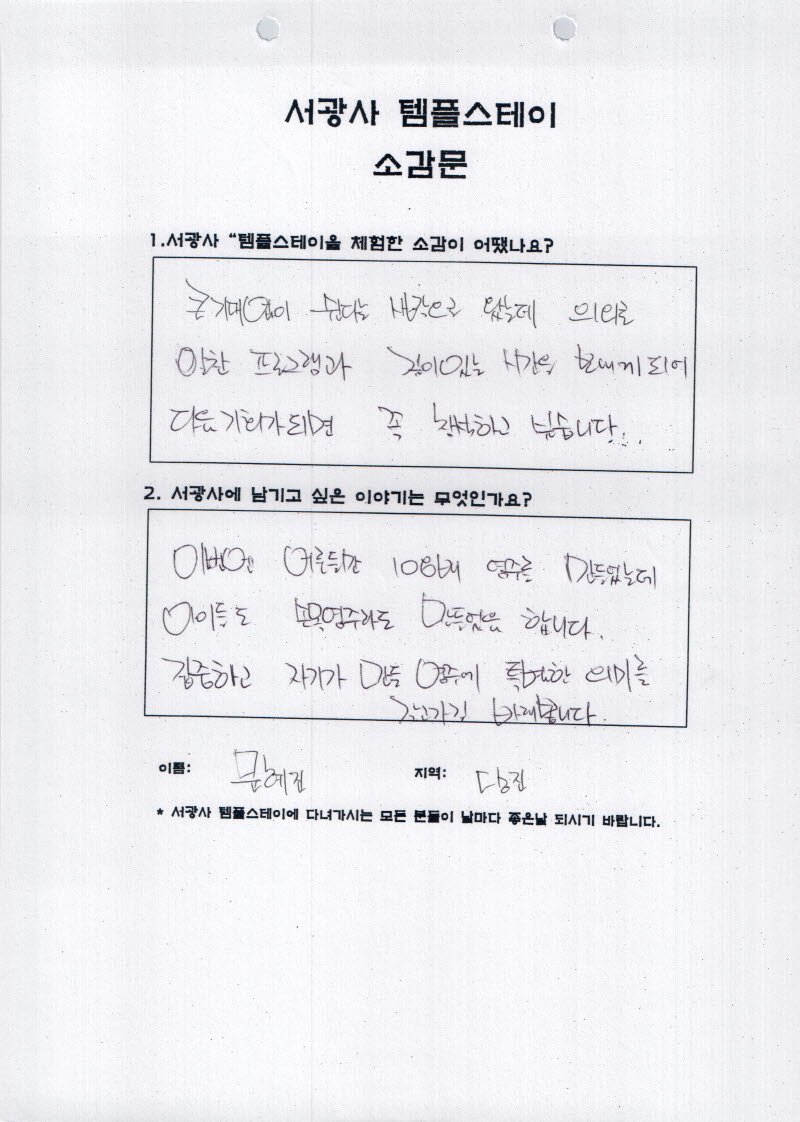 서광사 템플스테이
소감문
1.서광사 “템플스테이을 체험한 소감이 어땠나요?
큰기대없이 쉰다는 생각으로 왔는데 의외로
알찬 프로그램과 깊이있는 시간을 보내게 되어
다음 기회가되면 꼭 참석하고 싶습니다...
2. 서광사에 남기고 싶은 이야기는 무엇인가요?
이번엔 어른들만 108배 염주를 만들었는데
아이들도 손목염주라도 만들었음 합니다.
집중하고 자기가 만든 염주에 특별한 의미를
갖고가길 바래봅니다.
이름: 문혜진 지역: 당진
* 서광사 템플스테이에 다녀가시는 모든 분들이 날마다 좋은날 되시기 바랍니다.